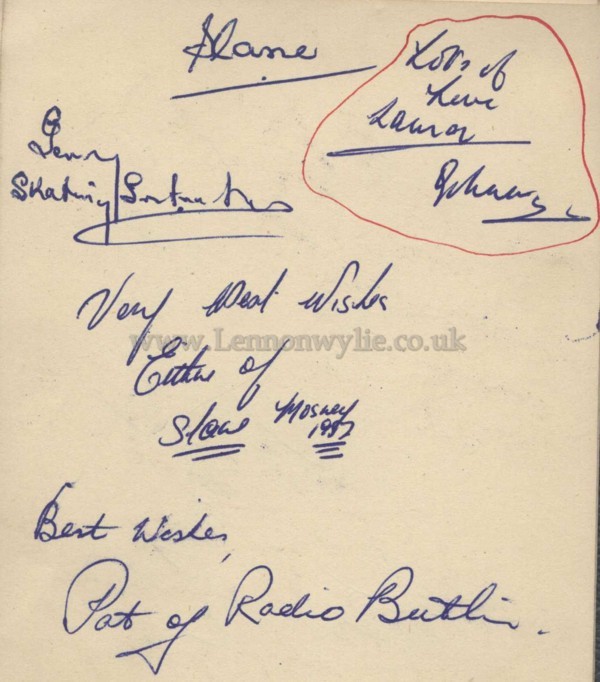 Slane
Lots of
Love
Johnny
Skating Instructor
Very Best Wishes
www.Lennonwylie.co.uk
of
Slane Mosney
Best Wishes,
Pat of Radio Butlin.